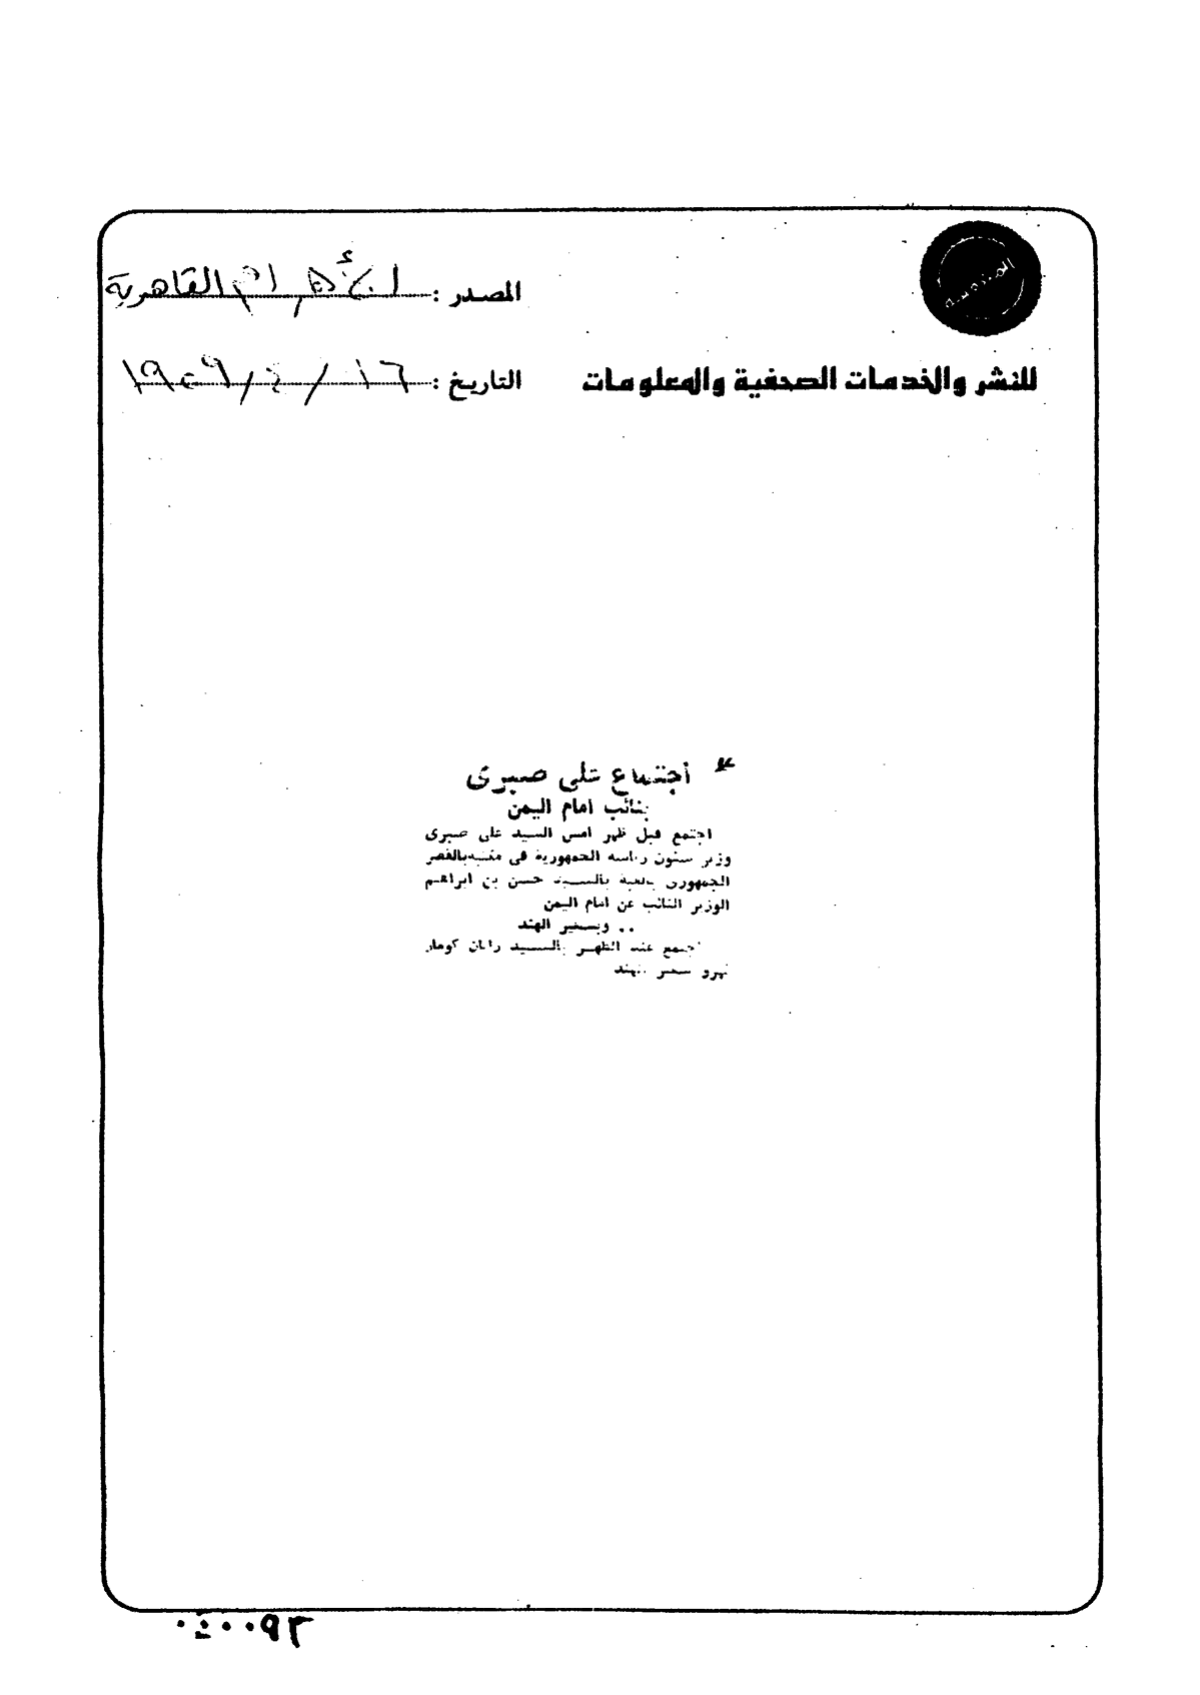 المصدر : الأهرام القاهرية
للنشر والخدمات الصحفية والمعلومات
التاريخ : ١٦ / ٤ / ١٩٥٩
* اجتماع على صبرى
بنائب امام اليمن
اجتمع قبل ظهر امس السيد على صبرى
وزير شئون رياسة الجمهورية فى مكتبه بالقصر
الجمهورى بالقبة بالسيد حسن بن ابراهيم
الوزير النائب عن امام اليمن
.. وبسفير الهند
اجتمع عند الظهر بالسيد راتان كومار
نهرو سفير الهند